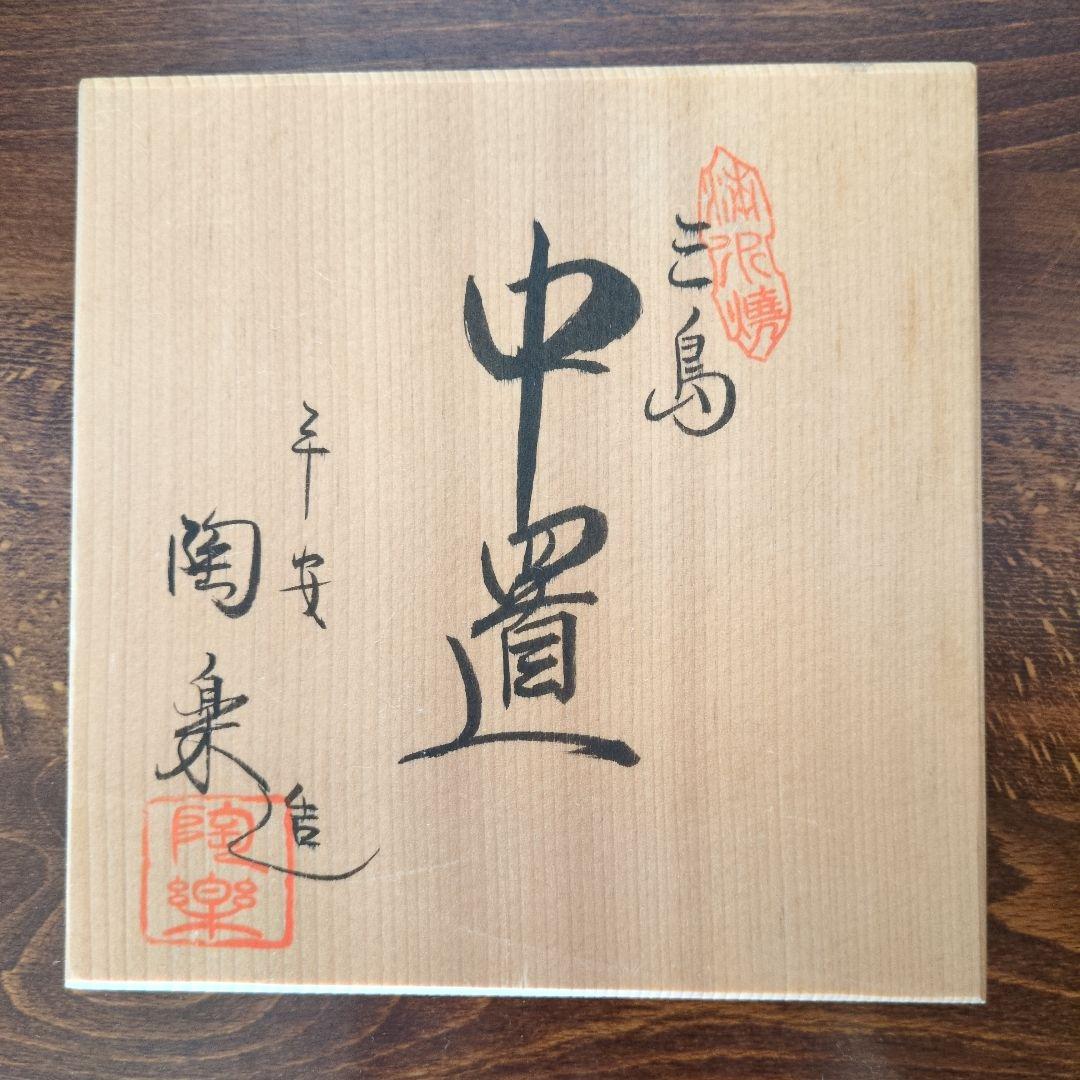 三島
中置
平安
陶楽造
陶樂